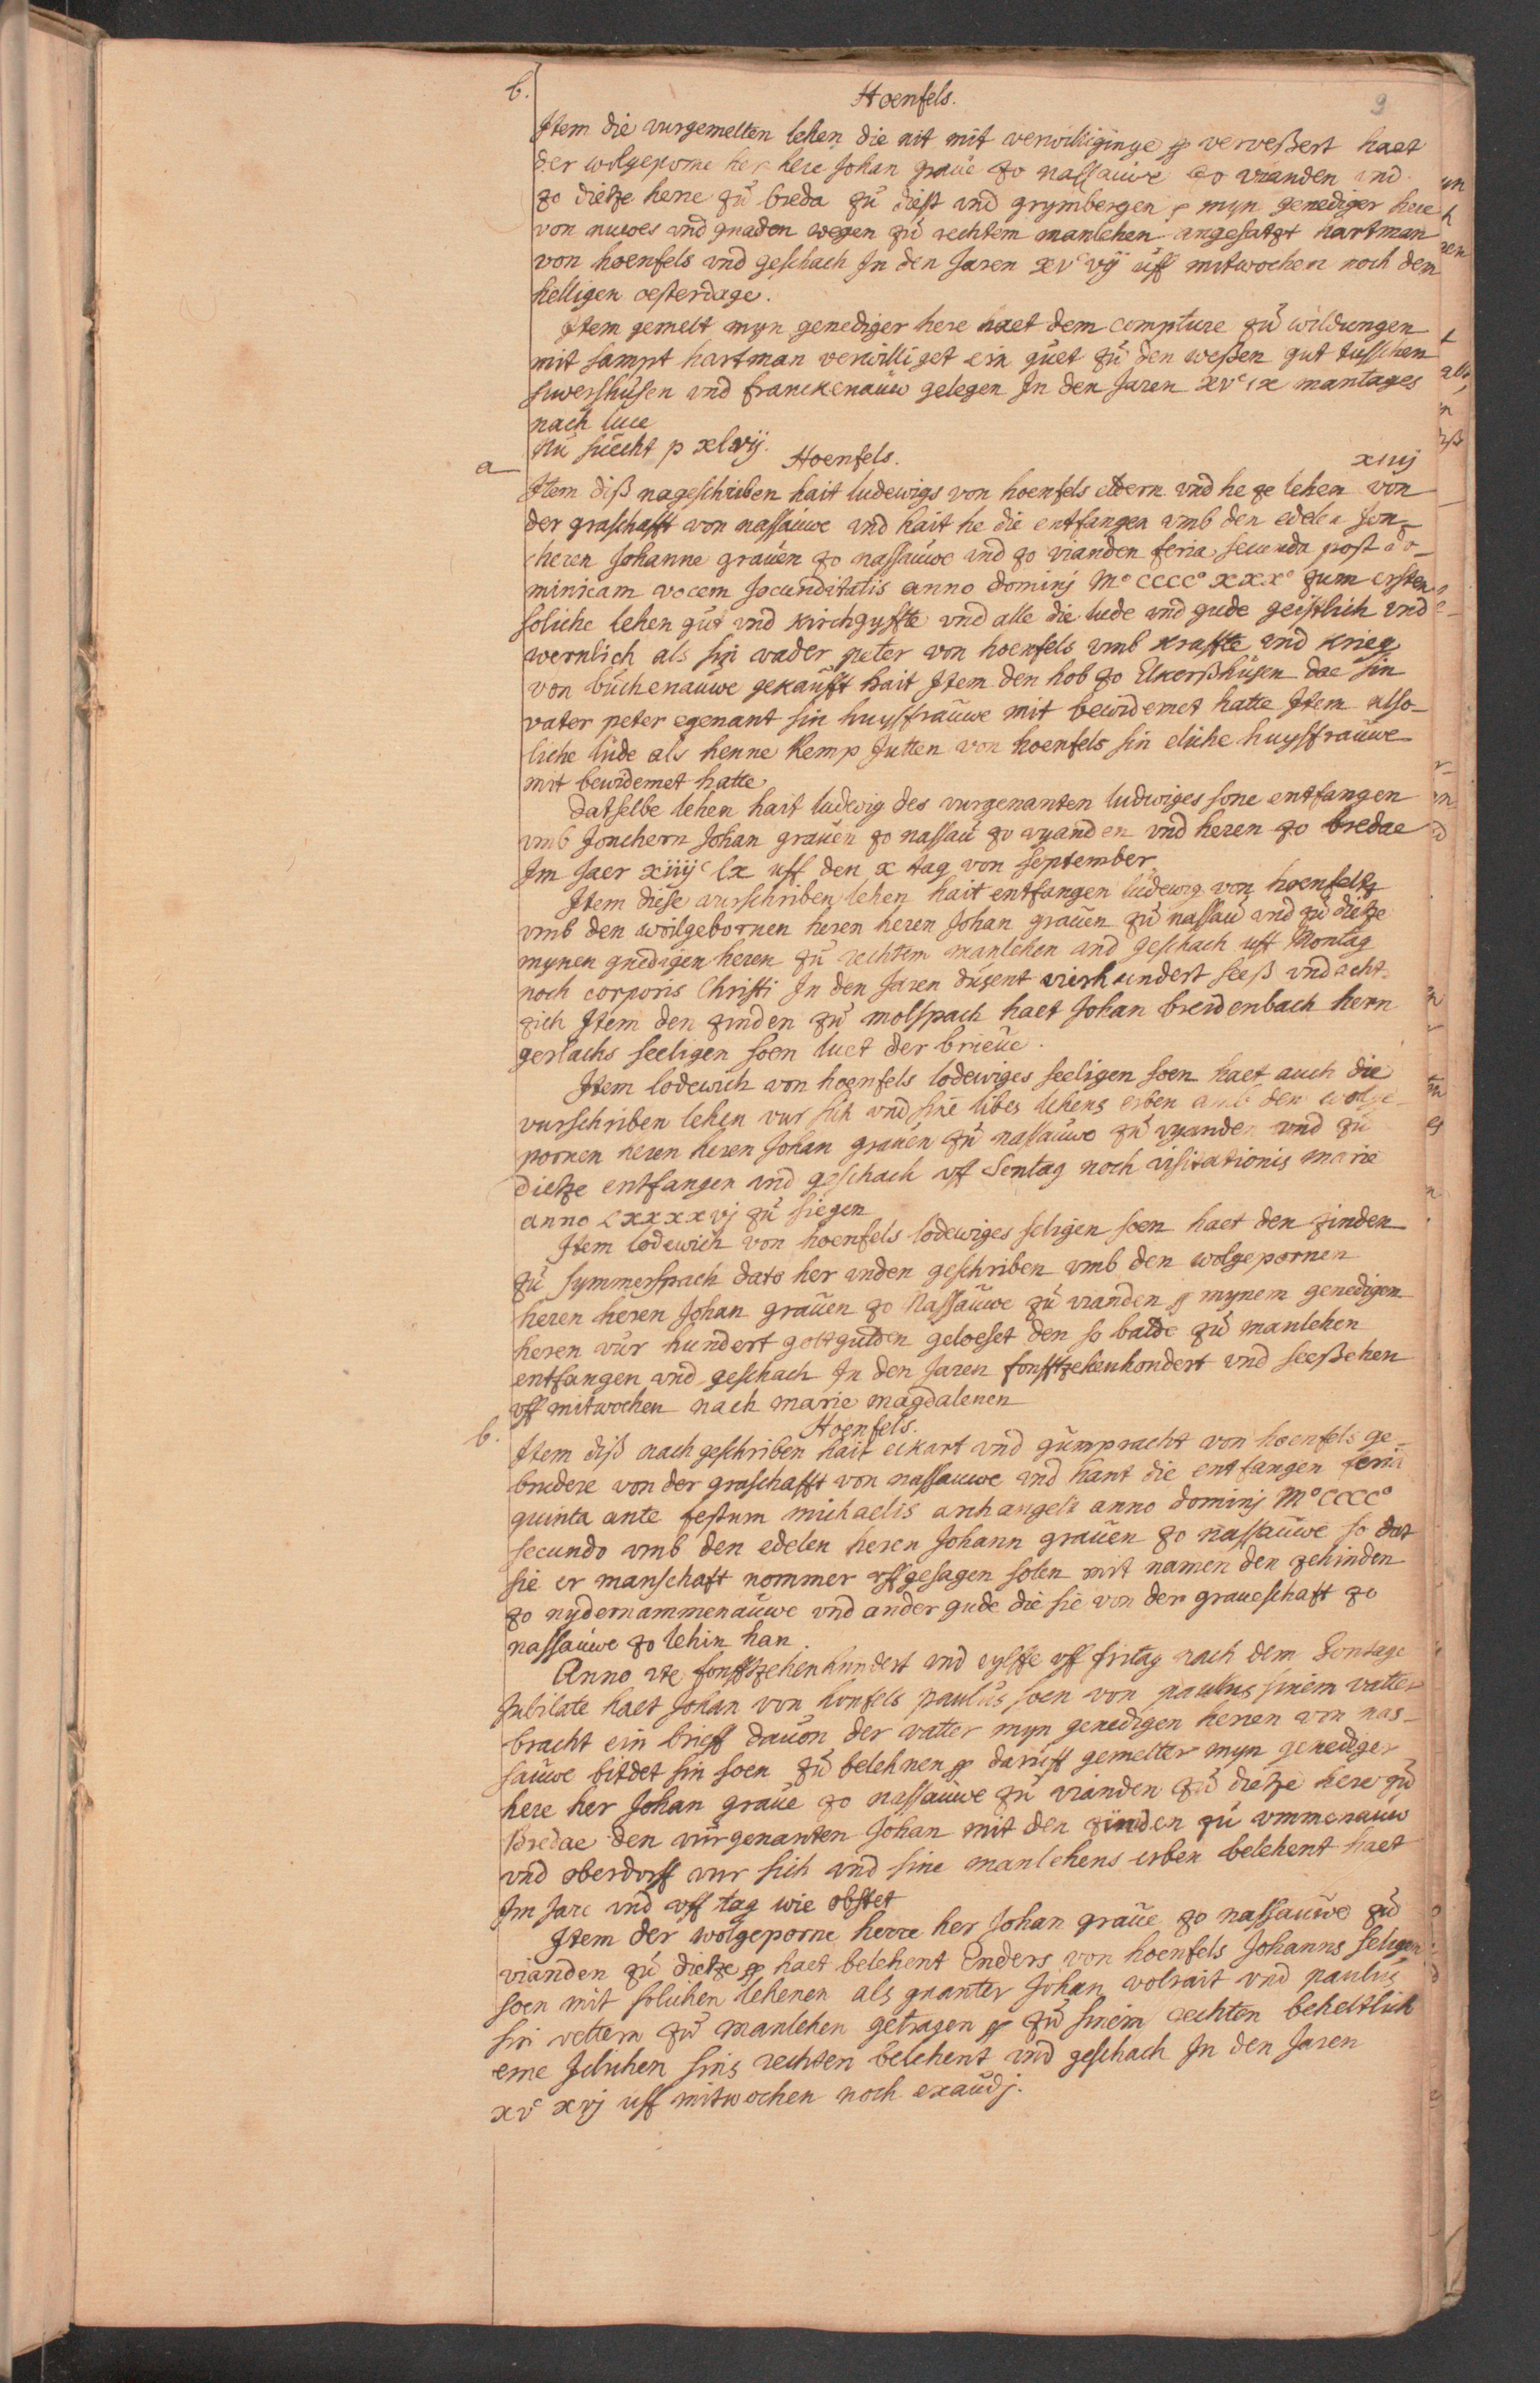 b.
Hoenfels.
9
Item die vurgemelten lehen die nit mit verwilliginge p verweßert haet
der wolgeporne her here Johan graue zo nassauwe zo vianden vnd
zo dietze herre zu breda zu diest vnd grymbergen p myn genediger here
von nuwes vnd gnaden wegen zu rechtem manlehen angesatzt hartman
von hoenfels vnd geschach In den Jaren xvᶜ vij uff mitwochen noch dem
helligen oesterdage.
Item gemelt myn genediger here haet dem compture zu wildungen
mit sampt hartman verwilliget ein guet zu den weßen gut tusschen
suwershusen vnd franckenauw gelegen In den Jaren xvᶜ ix mantages
nach luce
Nu suecht p xlvij.
a
Hoenfels.
xiiij
Item diß nageschrieben hait ludewigs von hoenfels eldern vnd he ze lehen von
der graschafft von nassauwe vnd hait he die entfangen vmb den edelen Jon-
cheren Johanne grauen zo nassauwe vnd zo vianden feria secunda post do-
minicam vocem Jocunditatis anno dominj M° CCCC° XXX° zum ersten
soliche lehen gut vnd kirchgyffte vnd alle die lude vnd gude geistlich vnd
wernlich als sin vader peter von hoenfels vmb kraffte vnd krieg
von buchenauwe gekaufft hait Item den hob zo Elkerßhusen dae sin
vater peter egenant sin huysfrauwe mit bewidemet hatte Item also-
liche lude als henne kemp Jutten von hoenfels sin eliche huysfrauwe
mit bewidemet hatte
datselbe lehen hait ludewig des vurgenanten ludwiges sone entfangen
vmb Jonchern Johan grauen zo nassau zo vyanden vnd heren zo bredae
Im Jaer xiiijᶜ lx uff den x tag von september.
Item diese vurschriben lehen hait entfangen ludewig von hoenfelß
vmb den woilgebornen heren heren Johan grauen zu nassau vnd zu dietze
mynen gnedigen heren zu rechtem manlehen vnd geschach uff Montag
noch corporis Christi In den Jaren dusent vierhundert seeß vnd acht-
zich Item den zinden zu molspach haet Johan breidenbach hern
gerlachs seeligen soen luet der brieue.
Item lodewich von hoenfels lodewiges seeligen soen haet auch die
vurschriben lehen vur sich vnd sine libes lehens erben vmb den wolge-
pornen heren heren Johan grauen zu nassauwe zu vyanden vnd zu
dietze entfangen vnd geschach uff Sontag noch visitationis marie
anno LXXXXVj zu siegen
Item lodewich von hoenfels lodewiges seligen soen haet den zinden
zu symmerspach dato her vnden geschriben vmb den wolgepornen
heren heren Johan grauen zo Nassauwe zu vianden p mynem genedigen
heren vur hundert goltgulden geloeset den so balde zu manlehen
entfangen vnd geschach In den Jaren fonfftzehenhondert vnd seeßehen
uff mitwochen nach marie magdalenen
b.
Hoenfels.
Item diß nachgeschriben hait eckart vnd gumpracht von hoenfels ge-
brudere von der graschafft von nassauwe vnd hant die entfangen feria
quinta ante festum michaelis archangeli anno dominj M° CCCC°
secundo vmb den edelen heren Johann grauen zo nassauwe so dat
sie er manschaft nommer uffgesagen solen mit namen den zehinden
zo nydernammenauwe vnd ander gude die sie von der graueschaft zo
nassauwe zo lehin han.
Anno etc fonfftzehenhundert vnd eylffe uff fritag nach dem Sontage
Jubilate haet Johan von honfels paulus soen von paulus sinem vatter
bracht ein brieff dauon der vatter myn genedigen herren von nas-
sauwe bitdet sin soen zu belehnen p daruff gemelter myn genediger
here her Johan graue zo nassauwe zu vianden zu dietze here zu
Bredae den vurgenanten Johan mit den zinden zu ummenauw
vnd oberdorff vur sich vnd sine manlehens erben belehent haet
Im Jare vnd uff tag wie obstet
Item der wolgeporne herre her Johan graue zo nassauwe zu
vianden zu dietze p haet belehent Enders von hoenfels Johanns seligen
soen mit solichen lehenen als gnanter Johan volrait vnd paulus
sin vettern zu manlehen getragen p zu sinem rechten beheltlich
eme Jclichen sins rechten belehent vnd geschach In den Jaren
xvᶜ xvj uff mitwochen noch exaudj.